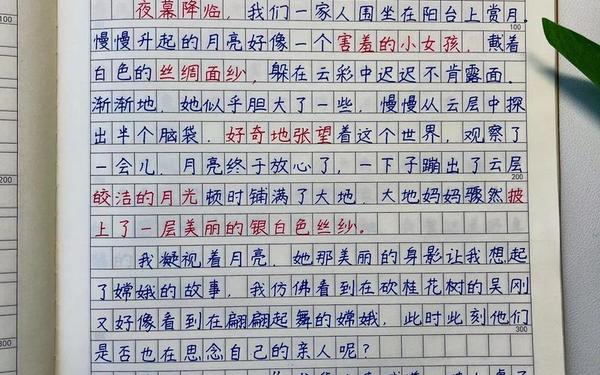 夜幕降临，我们一家人围坐在阳台上赏月。
100
慢慢升起的月亮好像一个害羞的小女孩，戴着
白色的丝绸面纱，躲在云彩中迟迟不肯露面。
渐渐地，她似乎胆大了一些，慢慢从云层中探
出半个脑袋，好奇地张望着这个世界，观察了
一会儿，月亮终于放心了，一下子蹦出了云层
200
皎洁的月光顿时铺满了大地，大地妈妈骤然披
上了一层美丽的银白色丝纱。
我凝视着月亮，她那美丽的身影让我想起
了嫦娥的故事，我仿佛看到在砍桂花树的吴刚
又好像看到在翩翩起舞的嫦娥，此时此刻他们
300
是否也在思念自己的亲人呢？